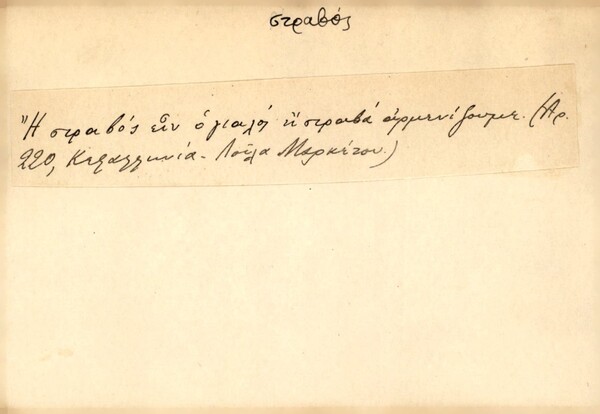 στραβός
"Ἡ στραβός εἶν ὁ γιαλός ἤ στραβά ἀρμενίζουμε. (Αρ.
220, Κεφαλληνία - Λούλα Μαρκέτου.)